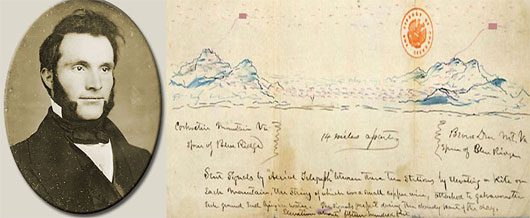 THE LIBRARY OF CONGRESS
Cohocton Mountain Va
Spur of Blue Ridge
14 miles apart
Beorse Deer Mt. Va
Spur of Blue Ridge
Sent Signals by Aerial Telegraph between these two stations by elevating a Kite on
each Mountain, the string of which was a small copper wire attached to galvanometer
and ground
perfect during this cloudy part of the day.
Elevation about fifteen hundred feet